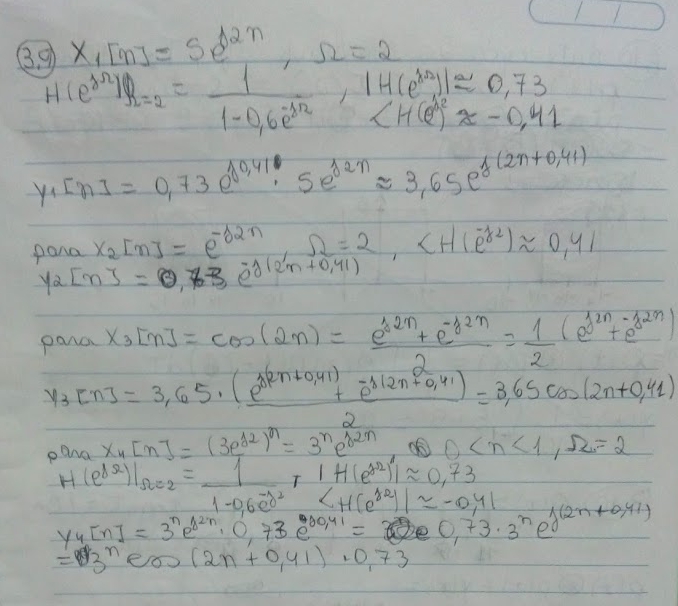 3.9) X₁[n] = 5e^{j2n} , Ω = 2
H(e^{jΩ})|Ω=2 = 1/(1-0,6e^{-jΩ}) , |H(e^{jΩ})| ≈ 0,73
<H(e^{j2}) ≈ -0,41
y₁[n] = 0,73e^{j0,41} · 5e^{j2n} ≈ 3,65e^{j(2n+0,41)}
para X₂[n] = e^{-j2n} , Ω = 2 , <H(e^{-j2}) ≈ 0,41
y₂[n] = 0,73 e^{-j(2n+0,41)}
para X₃[n] = cos(2n) = (e^{j2n} + e^{-j2n})/2 = 1/2 (e^{j2n} + e^{-j2n})
y₃[n] = 3,65 · (e^{j(2n+0,41)} + e^{-j(2n+0,41)})/2 = 3,65 cos(2n+0,41)
para X₄[n] = (3e^{j2})^n = 3^n e^{j2n} 0 < n < 1 , Ω = 2
H(e^{jΩ})|Ω=2 = 1/(1-0,6e^{-j2}) , |H(e^{jΩ})| ≈ 0,73
<H(e^{j2})| ≈ -0,41
y₄[n] = 3^n e^{j2n} · 0,73 e^{j0,41} = 0,73 · 3^n e^{j(2n+0,41)}
= 3^n cos(2n+0,41) · 0,73